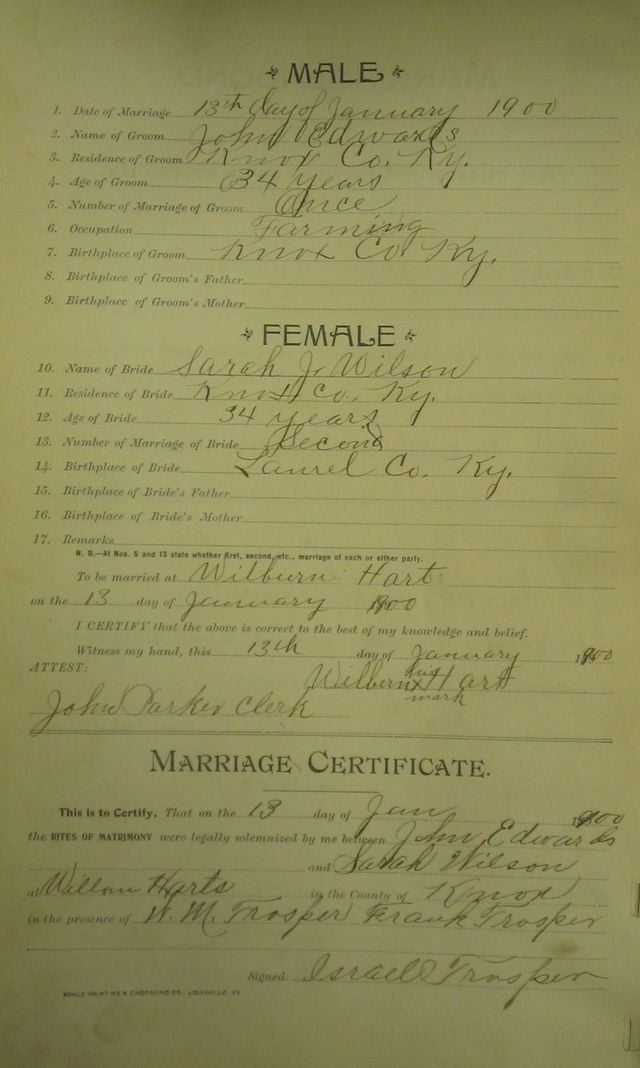 MALE
1. Date of Marriage 13th day of January 1900
2. Name of Groom John Edwards
3. Residence of Groom Knox Co. Ky.
4. Age of Groom 34 years
5. Number of Marriage of Groom Once
6. Occupation Farming
7. Birthplace of Groom Knox Co. Ky.
8. Birthplace of Groom's Father
9. Birthplace of Groom's Mother
FEMALE
10. Name of Bride Sarah J. Wilson
11. Residence of Bride Knox Co. Ky.
12. Age of Bride 34 years
13. Number of Marriage of Bride Second
14. Birthplace of Bride Laurel Co. Ky.
15. Birthplace of Bride's Father
16. Birthplace of Bride's Mother
17. Remarks
N. B.—At Nos. 5 and 13 state whether first, second, etc., marriage of each or either party.
To be married at Wilburn Hart
on the 13 day of January 1900
I CERTIFY that the above is correct to the best of my knowledge and belief.
Witness my hand, this 13th day of January 1900
ATTEST: Wilbern his x mark Hart
John Parker Clerk
MARRIAGE CERTIFICATE.
This is to Certify, That on the 13 day of Jan 1900
the RITES OF MATRIMONY were legally solemnized by me between John Edwards
and Sarah Wilson
at Harts in the County of Knox
in the presence of W. M. Trosper Frank Trosper
Signed: Israel Trosper
PRINTING & ENGRAVING CO., LOUISVILLE, KY.